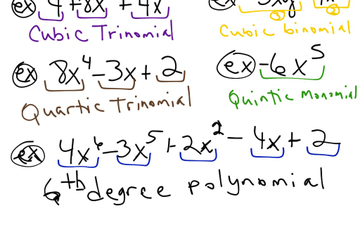 ex 4 + 8x + 4x
Cubic Trinomial
Cubic binomial
ex 8x⁴ - 3x + 2
Quartic Trinomial
ex -6x⁵
Quintic Monomial
ex 4x⁶ - 3x⁵ + 2x² - 4x + 2
6th degree polynomial